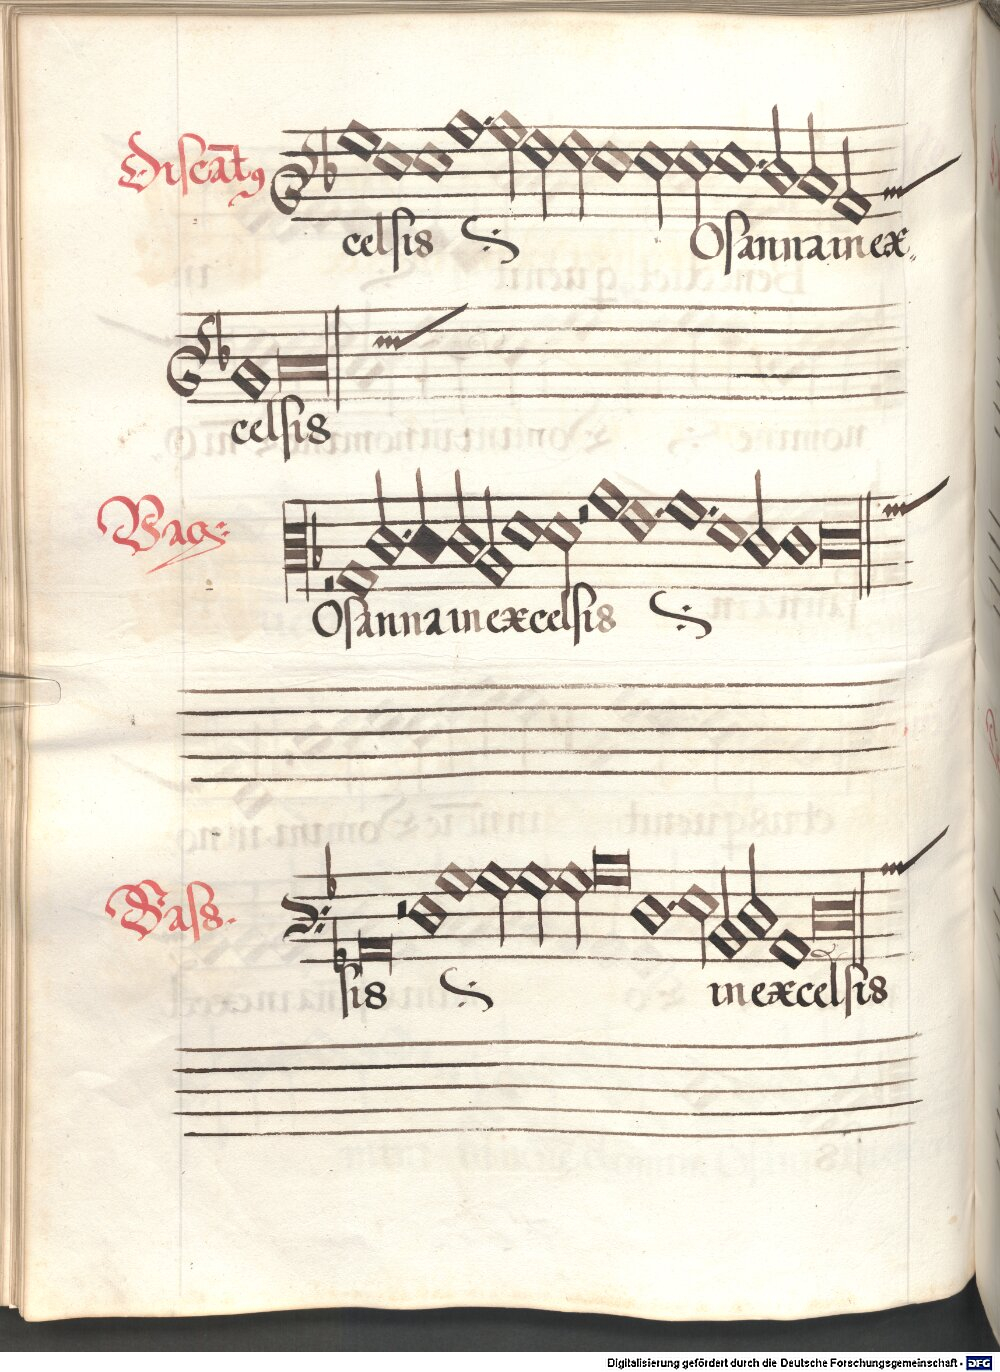 Discāt9
celsis Osanna in ex
celsis
Vag:
Osanna in excelsis
Bass.
sis in excelsis
Digitalisierung gefördert durch die Deutsche Forschungsgemeinschaft - DFG